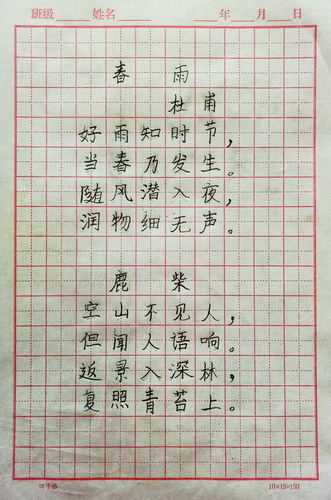 班级 姓名 年 月 日
春雨
杜甫
好雨知时节，
当春乃发生。
随风潜入夜，
润物细无声。
鹿柴
空山不见人，
但闻人语响。
返景入深林，
复照青苔上。
田字格 10×15=150